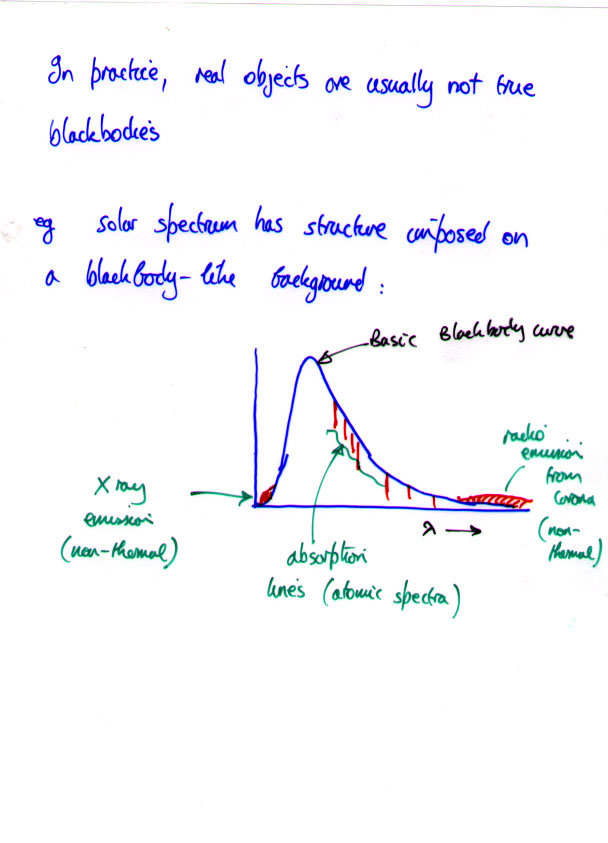 In practice, real objects are usually not true
blackbodies
eg solar spectrum has structure imposed on
a blackbody-like background :
Basic Blackbody curve
radio
emission
from
corona
(non-
thermal)
X ray
emission
(non-thermal)
λ →
absorption
lines (atomic spectra)